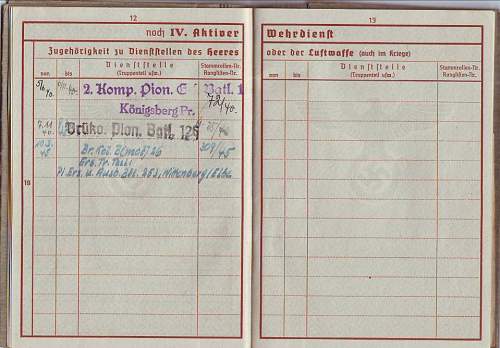 12
noch IV. Aktiver
Zugehörigkeit zu Dienststellen des Heeres
von
bis
Dienststelle
(Truppenteil usw.)
Stammrollen-Nr.
Ranglisten-Nr.
40.
2. Komp. Pion. E Batl. 1
Königsberg Pr.
72/40.
7.11
40.
Brüko. Pion. Batl. 126
45
Br. Kol. B (mot) 26
309/45
Ers. Tr.
Pi Ers. u. Ausb. Btl. 253, Wittenberg/Elbe
18
13
Wehrdienst
oder der Luftwaffe (auch im Kriege)
von
bis
Dienststelle
(Truppenteil usw.)
Stammrollen-Nr.
Ranglisten-Nr.